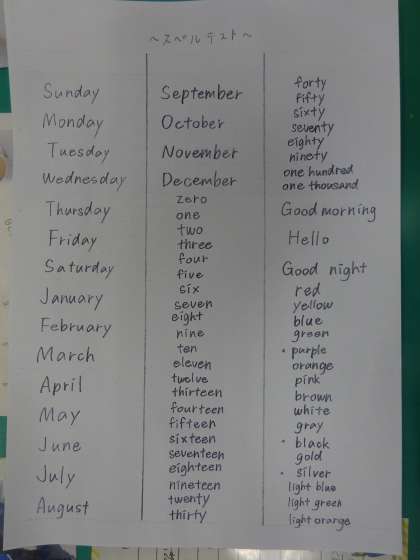 ～スペルテスト～
Sunday
Monday
Tuesday
Wednesday
Thursday
Friday
Saturday
January
February
March
April
May
June
July
August
September
October
November
December
zero
one
two
three
four
five
six
seven
eight
nine
ten
eleven
twelve
thirteen
fourteen
fifteen
sixteen
seventeen
eighteen
nineteen
twenty
thirty
forty
fifty
sixty
seventy
eighty
ninety
one hundred
one thousand
Good morning
Hello
Good night
red
yellow
blue
green
・purple
orange
pink
brown
white
gray
・black
gold
・silver
light blue
light green
light orange